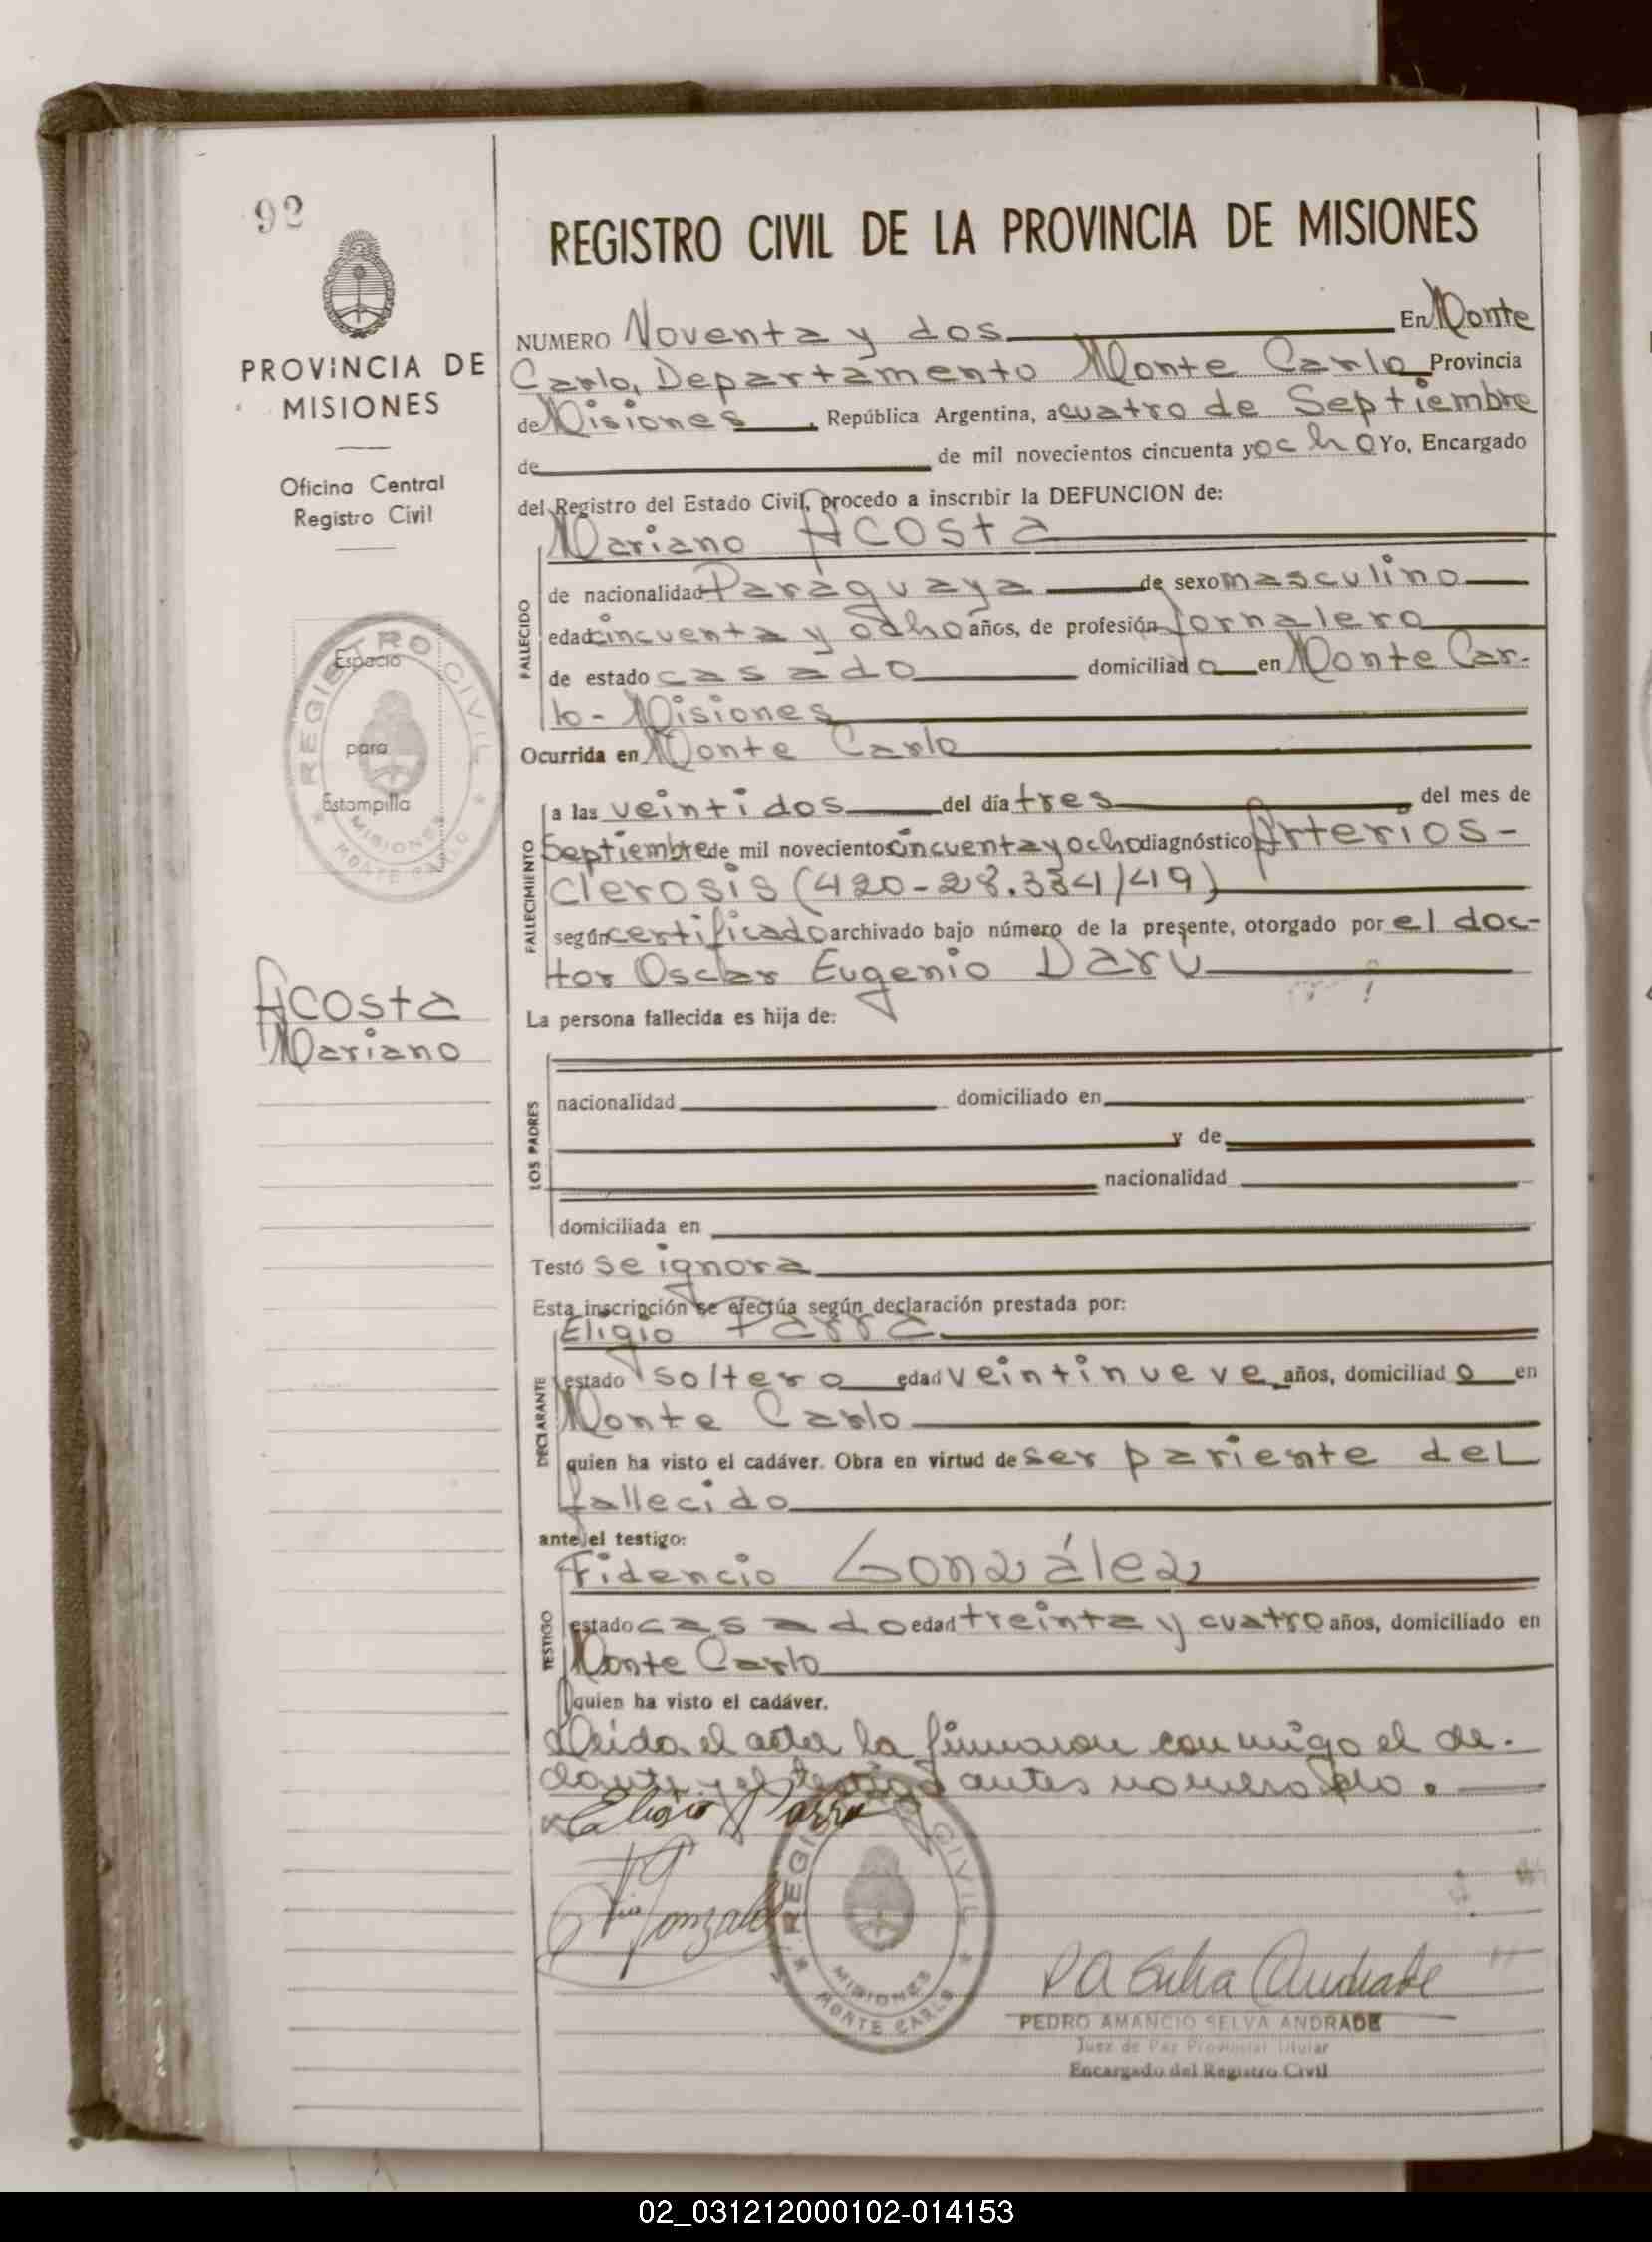 92
PROVINCIA DE
MISIONES
Oficina Central
Registro Civil
REGISTRO CIVIL
Espacio
para
Estampilla
MISIONES
MONTE CARLO
Acosta
Mariano
REGISTRO CIVIL DE LA PROVINCIA DE MISIONES
NUMERO Noventa y dos En Monte
Carlo, Departamento Monte Carlo Provincia
de Misiones, República Argentina, a cuatro de Septiembre
de de mil novecientos cincuenta y ocho Yo, Encargado
del Registro del Estado Civil, procedo a inscribir la DEFUNCION de:
Mariano Acosta
FALLECIDO
de nacionalidad Paraguaya de sexo masculino
edad cincuenta y ocho años, de profesión jornalero
de estado casado domiciliado en Monte Car-
lo - Misiones
Ocurrida en Monte Carlo
FALLECIMIENTO
a las veintidos del día tres del mes de
Septiembre de mil novecientos cincuenta y ocho diagnóstico Arterios-
clerosis (420-28.334/49)
según certificado archivado bajo número de la presente, otorgado por el doc-
tor Oscar Eugenio Daru
La persona fallecida es hija de:
LOS PADRES
nacionalidad domiciliado en
y de
nacionalidad
domiciliada en
Testó se ignora
Esta inscripción se efectúa según declaración prestada por:
Eligio Parra
DECLARANTE
estado soltero edad veintinueve años, domiciliado en
Monte Carlo
quien ha visto el cadáver. Obra en virtud de ser pariente del
fallecido
ante el testigo:
Fidencio González
TESTIGO
estado casado edad treinta y cuatro años, domiciliado en
Monte Carlo
quien ha visto el cadáver.
Leída el acta la firmaron conmigo el de-
clarante y el testigo antes nombrado.
Eligio Parra
Gonzalez
REGISTRO CIVIL
MISIONES
MONTE CARLO
P A Selva Andrade
PEDRO AMANCIO SELVA ANDRADE
Juez de Paz Provincial Titular
Encargado del Registro Civil
02_031212000102-014153